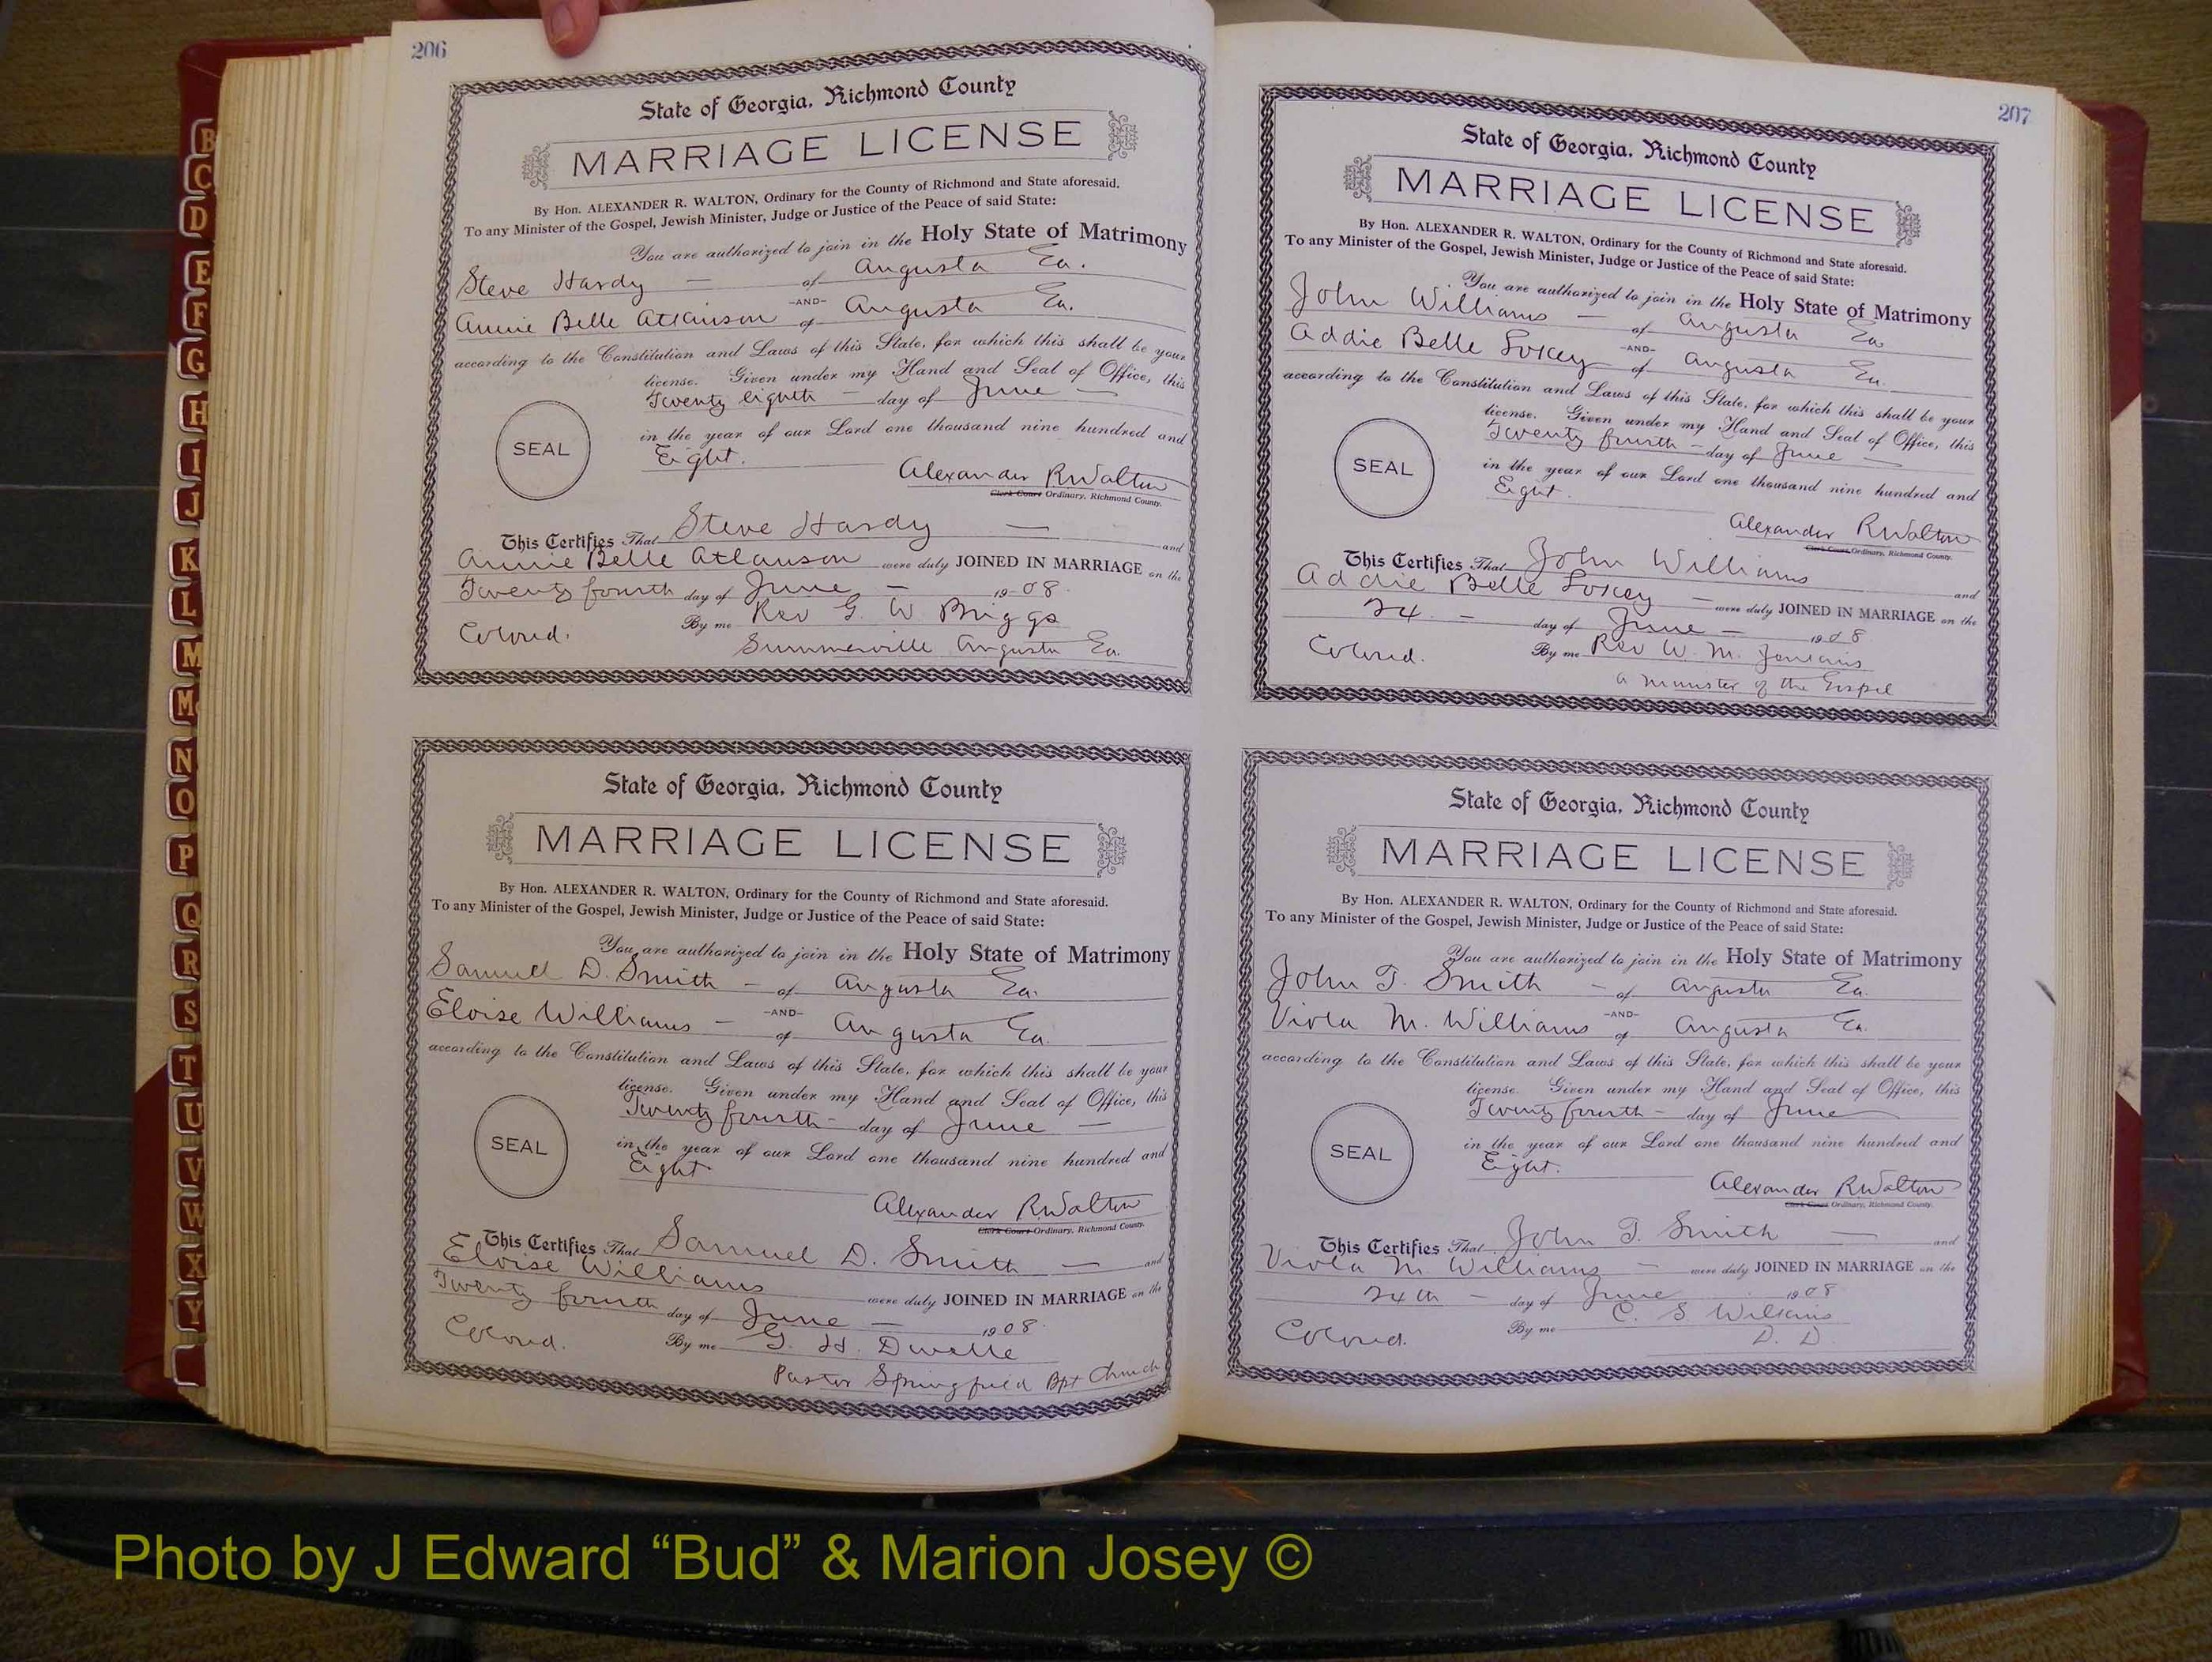 206
State of Georgia, Richmond County
MARRIAGE LICENSE
By Hon. ALEXANDER R. WALTON, Ordinary for the County of Richmond and State aforesaid.
To any Minister of the Gospel, Jewish Minister, Judge or Justice of the Peace of said State:
You are authorized to join in the Holy State of Matrimony
Steve Hardy — of Augusta Ga.
-AND-
Annie Belle of Augusta Ga.
according to the Constitution and Laws of this State, for which this shall be your
license. Given under my Hand and Seal of Office, this
Twenty eighth — day of June —
in the year of our Lord one thousand nine hundred and
Eight.
SEAL
Alexander R Walton
Clerk Court Ordinary, Richmond County.
This Certifies That Steve Hardy — and
Annie Belle were duly JOINED IN MARRIAGE on the
Twenty fourth day of June — 1908.
Colored. By me Rev G. W. Briggs
Summerville Augusta Ga.
State of Georgia, Richmond County
MARRIAGE LICENSE
By Hon. ALEXANDER R. WALTON, Ordinary for the County of Richmond and State aforesaid.
To any Minister of the Gospel, Jewish Minister, Judge or Justice of the Peace of said State:
You are authorized to join in the Holy State of Matrimony
Samuel D. Smith — of Augusta Ga.
-AND-
Eloise Williams — of Augusta Ga.
according to the Constitution and Laws of this State, for which this shall be your
license. Given under my Hand and Seal of Office, this
Twenty fourth — day of June —
in the year of our Lord one thousand nine hundred and
Eight
SEAL
Alexander R Walton
Clerk Court Ordinary, Richmond County.
This Certifies That Samuel D. Smith — and
Eloise Williams were duly JOINED IN MARRIAGE on the
Twenty fourth day of June — 1908.
Colored. By me G. H. Dwelle
Pastor Springfield Bpt Church
207
State of Georgia, Richmond County
MARRIAGE LICENSE
By Hon. ALEXANDER R. WALTON, Ordinary for the County of Richmond and State aforesaid.
To any Minister of the Gospel, Jewish Minister, Judge or Justice of the Peace of said State:
You are authorized to join in the Holy State of Matrimony
John Williams — of Augusta Ga
-AND-
Addie Belle of Augusta Ga.
according to the Constitution and Laws of this State, for which this shall be your
license. Given under my Hand and Seal of Office, this
Twenty fourth — day of June —
in the year of our Lord one thousand nine hundred and
Eight.
SEAL
Alexander R Walton
Clerk Court Ordinary, Richmond County.
This Certifies That John Williams and
Addie Belle — were duly JOINED IN MARRIAGE on the
24 — day of June — 1908
Colored. By me Rev W. M.
a minister of the Gospel
State of Georgia, Richmond County
MARRIAGE LICENSE
By Hon. ALEXANDER R. WALTON, Ordinary for the County of Richmond and State aforesaid.
To any Minister of the Gospel, Jewish Minister, Judge or Justice of the Peace of said State:
You are authorized to join in the Holy State of Matrimony
John T. Smith — of Augusta Ga.
-AND-
Viola M. Williams of Augusta Ga.
according to the Constitution and Laws of this State, for which this shall be your
license. Given under my Hand and Seal of Office, this
Twenty fourth — day of June
in the year of our Lord one thousand nine hundred and
Eight.
SEAL
Alexander R Walton
Clerk Court Ordinary, Richmond County.
This Certifies That John T. Smith — and
Viola M. Williams — were duly JOINED IN MARRIAGE on the
24th — day of June 1908
Colored. By me C. S Wilkins
D. D
B
C
D
E
F
G
H
I
J
K
L
M
Mc
N
O
P
Q
R
S
T
U
V
W
X
Y
Photo by J Edward “Bud” & Marion Josey ©